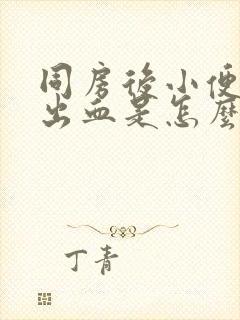 同房後小便
出血是怎麼
丁青